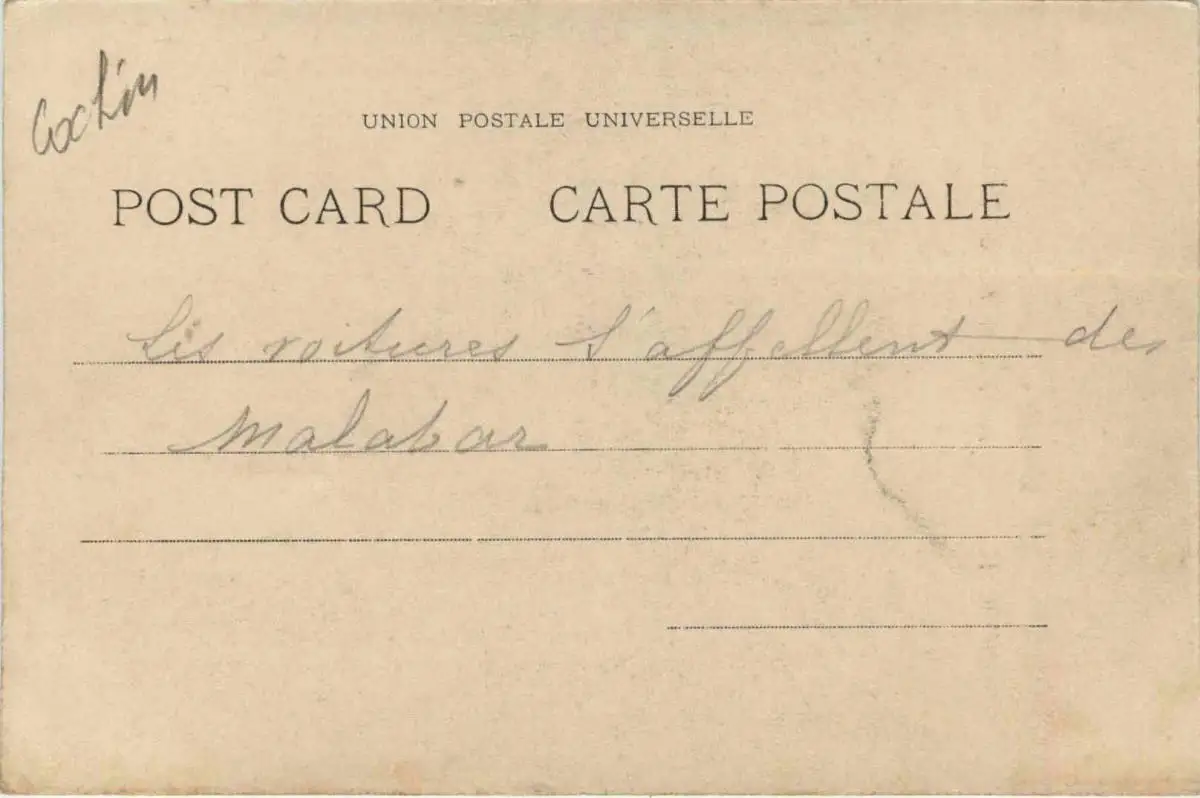 Cochin
UNION POSTALE UNIVERSELLE
POST CARD CARTE POSTALE
Les voitures s'appellent des
Malabar